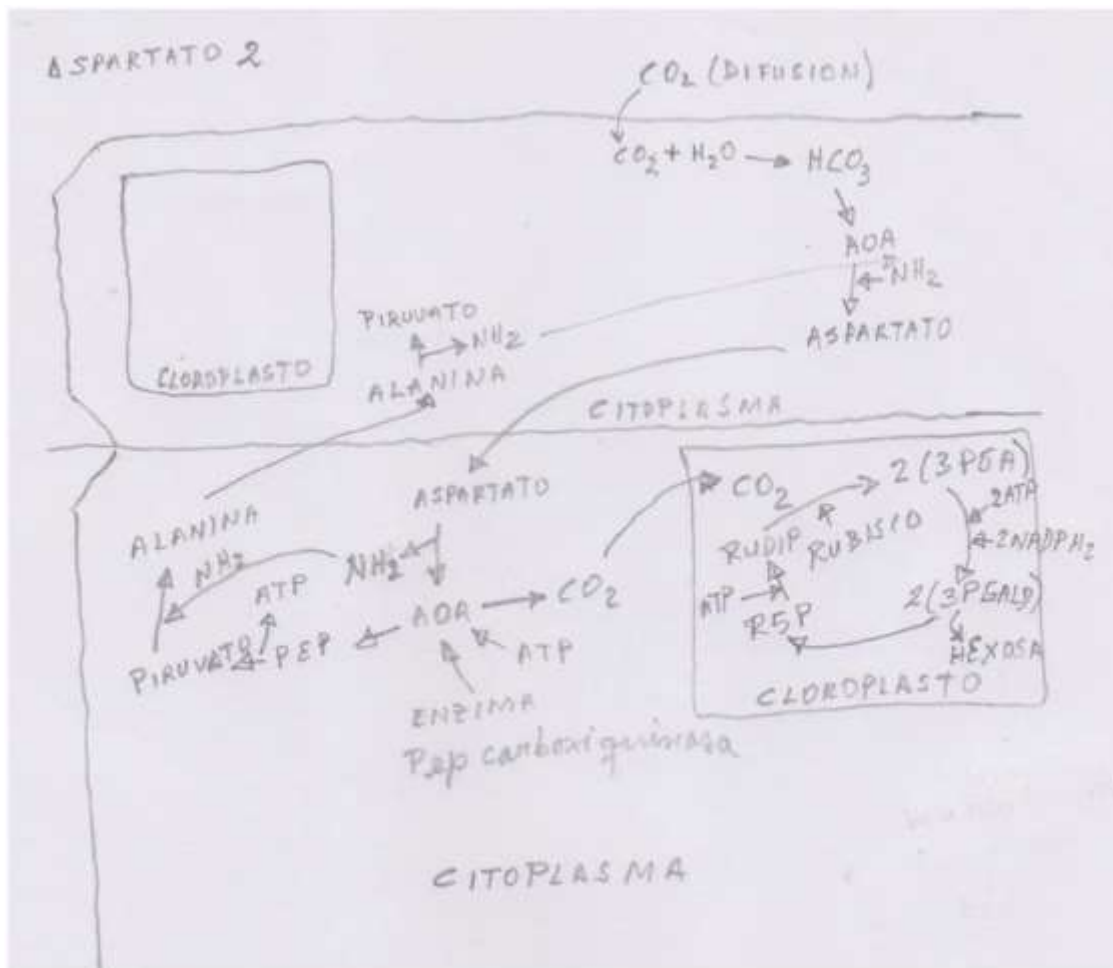 ASPARTATO 2
CO2 (DIFUSION)
CO2 + H2O → HCO3
AOA
NH2
ASPARTATO
PIRUVATO
NH2
ALANINA
CLOROPLASTO
CITOPLASMA
ASPARTATO
ALANINA
NH2
NH2
ATP
AOA → CO2
PIRUVATO
PEP
ATP
ENZIMA
Pep carboxiquinasa
CO2
2 (3PGA)
2ATP
RUDIP
RUBISCO
2NADPH2
ATP
R5P
2 (3PGALD)
HEXOSA
CLOROPLASTO
CITOPLASMA